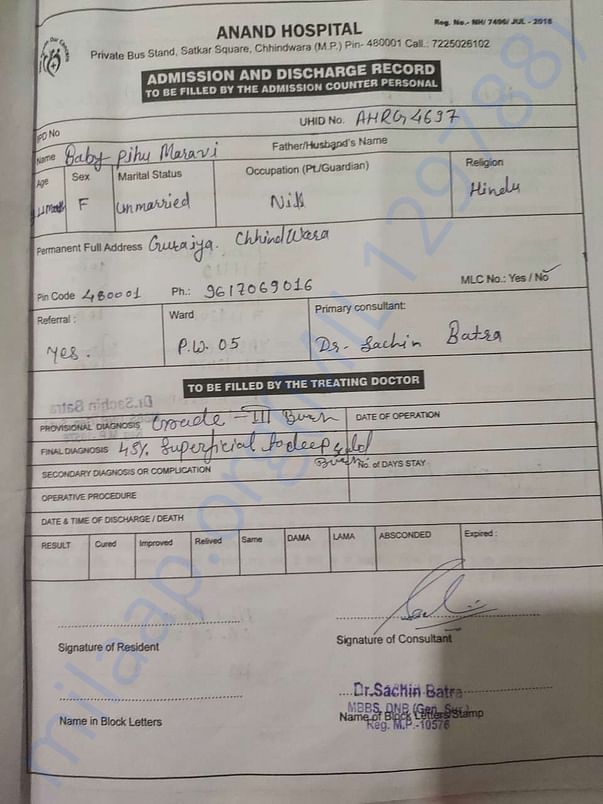 Reg. No.- NH/ 7496/ JUL - 2016
ANAND HOSPITAL
Private Bus Stand, Satkar Square, Chhindwara (M.P.) Pin- 480001 Call.: 7225026102
ADMISSION AND DISCHARGE RECORD
TO BE FILLED BY THE ADMISSION COUNTER PERSONAL
IPD No
UHID No. AHRG4697
Name Baby Pihu Maravi Father/Husband's Name
Age Sex Marital Status Occupation (Pt./Guardian) Religion
F Unmarried Nill Hindu
Permanent Full Address Guraiya. Chhindwara
Pin Code 480001 Ph.: 9617069016 MLC No.: Yes / No
Referral : Ward Primary consultant:
Yes. P.W. 05 Dr. Sachin Batra
TO BE FILLED BY THE TREATING DOCTOR
Dr.Sachin Batra
PROVISIONAL DIAGNOSIS Grade - III Burn DATE OF OPERATION
FINAL DIAGNOSIS 45% Superficial to deep
Burn
SECONDARY DIAGNOSIS OR COMPLICATION No. of DAYS STAY
OPERATIVE PROCEDURE
DATE & TIME OF DISCHARGE / DEATH
RESULT Cured Improved Relived Same DAMA LAMA ABSCONDED Expired :
Signature of Resident Signature of Consultant
Dr.Sachin Batra
MBBS, DNB (Gen. Sur.)
Name in Block Letters Name of Block Letters/Stamp
Reg. M.P.-10576
milaap.org/rMIL1297881